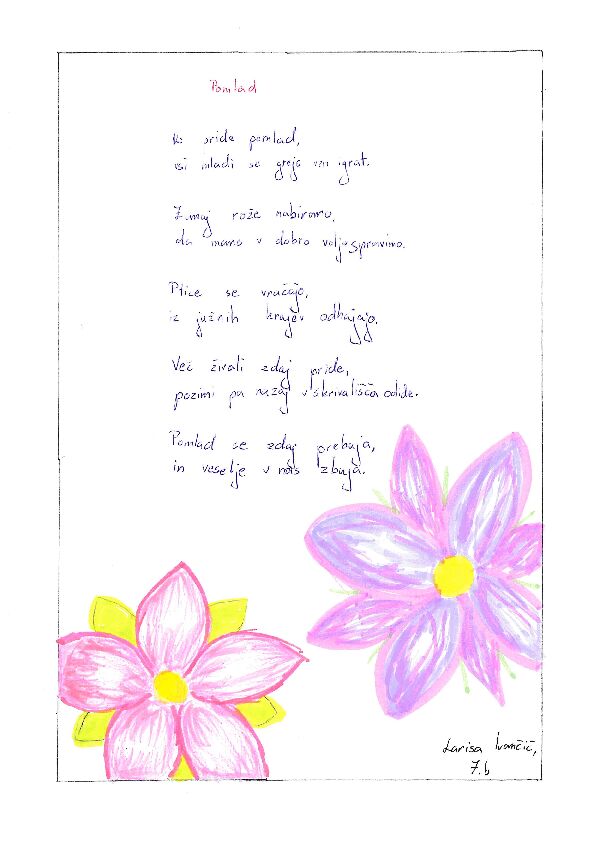 Pomlad
Ko pride pomlad,
vsi mladi se grejo ven igrat.
Zunaj rože nabiramo,
da mamo v dobro voljo spravimo.
Ptice se vračajo,
iz južnih krajev odhajajo.
Več živali zdaj pride,
pozimi pa nazaj v skrivališča odide.
Pomlad se zdaj prebuja,
in veselje v nas zbuja.
Larisa Ivančič,
7.b